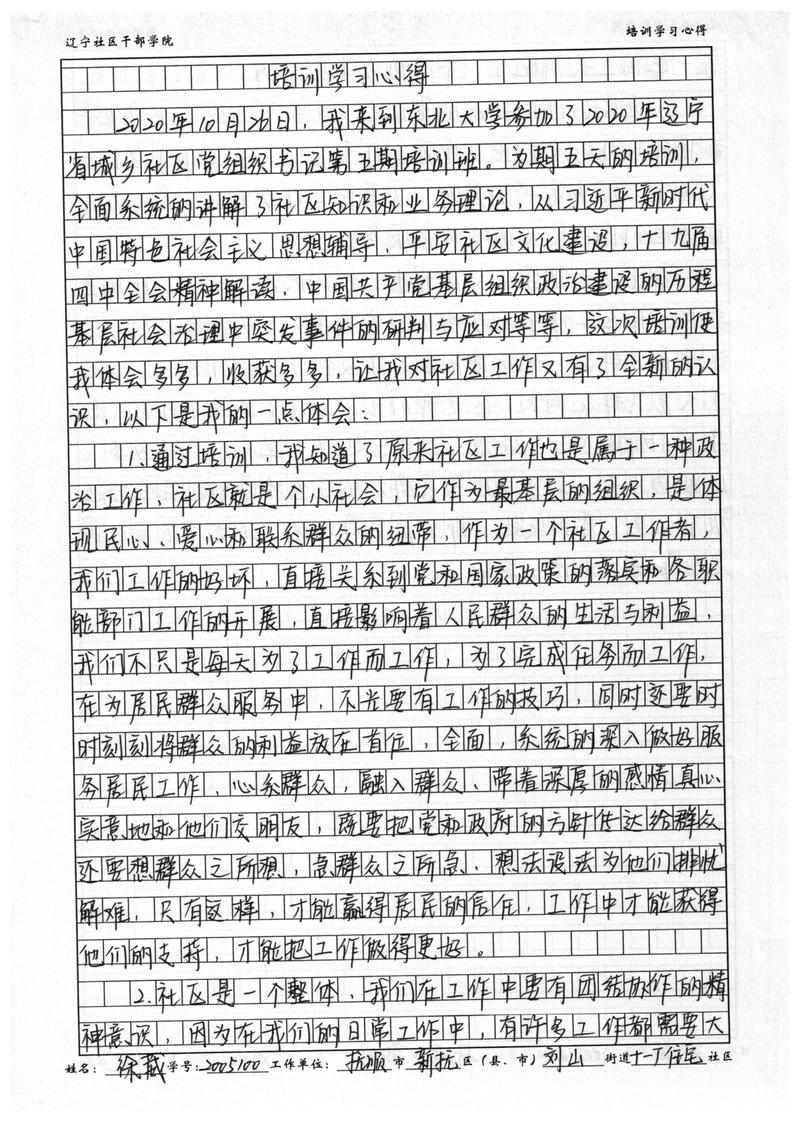 辽宁社区干部学院
培训学习心得
培训学习心得
2020年10月26日，我来到东北大学参加了2020年辽宁
省城乡社区党组织书记第五期培训班。为期五天的培训，
全面系统的讲解了社区知识和业务理论，从习近平新时代
中国特色社会主义思想辅导、平安社区文化建设，十九届
四中全会精神解读、中国共产党基层组织政治建设的历程
基层社会治理中突发事件的研判与应对等等，这次培训使
我体会多多，收获多多，让我对社区工作又有了全新的认
识，以下是我的一点体会：
1.通过培训，我知道了原来社区工作也是属于一种政
治工作，社区就是个小社会，它作为最基层的组织，是体
现民心、爱心和联系群众的纽带，作为一个社区工作者，
我们工作的好坏，直接关系到党和国家政策的落实和各职
能部门工作的开展，直接影响着人民群众的生活与利益，
我们不只是每天为了工作而工作，为了完成任务而工作，
在为居民群众服务中，不光要有工作的技巧，同时还要时
时刻刻将群众的利益放在首位，全面，系统的深入做好服
务居民工作，心系群众，融入群众、带着深厚的感情真心
实意地和他们交朋友，既要把党和政府的方针传达给群众
还要想群众之所想，急群众之所急、想法设法为他们排忧
解难，只有这样，才能赢得居民的信任，工作中才能获得
他们的支持，才能把工作做得更好。
2.社区是一个整体，我们在工作中要有团结协作的精
神意识，因为在我们的日常工作中，有许多工作都需要大
姓名：徐 学号：2005100 工作单位：抚顺市新抚区（县、市）刘山街道十一丁住宅社区